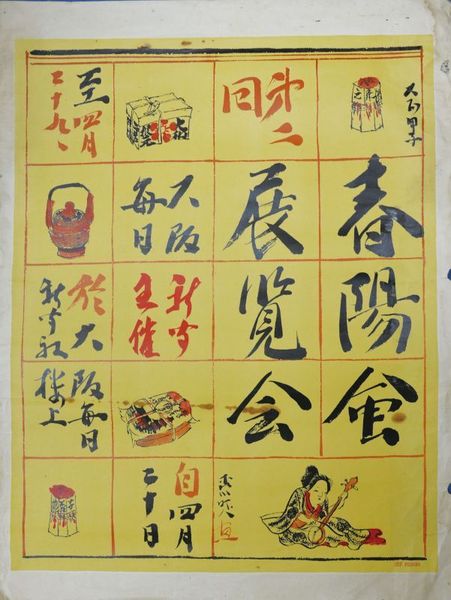 大正甲子
春陽会
第二
回
展覧会
大阪
毎日
新聞
主催
自四月
二十日
至四月
二十九日
於大阪毎日
新聞社楼上